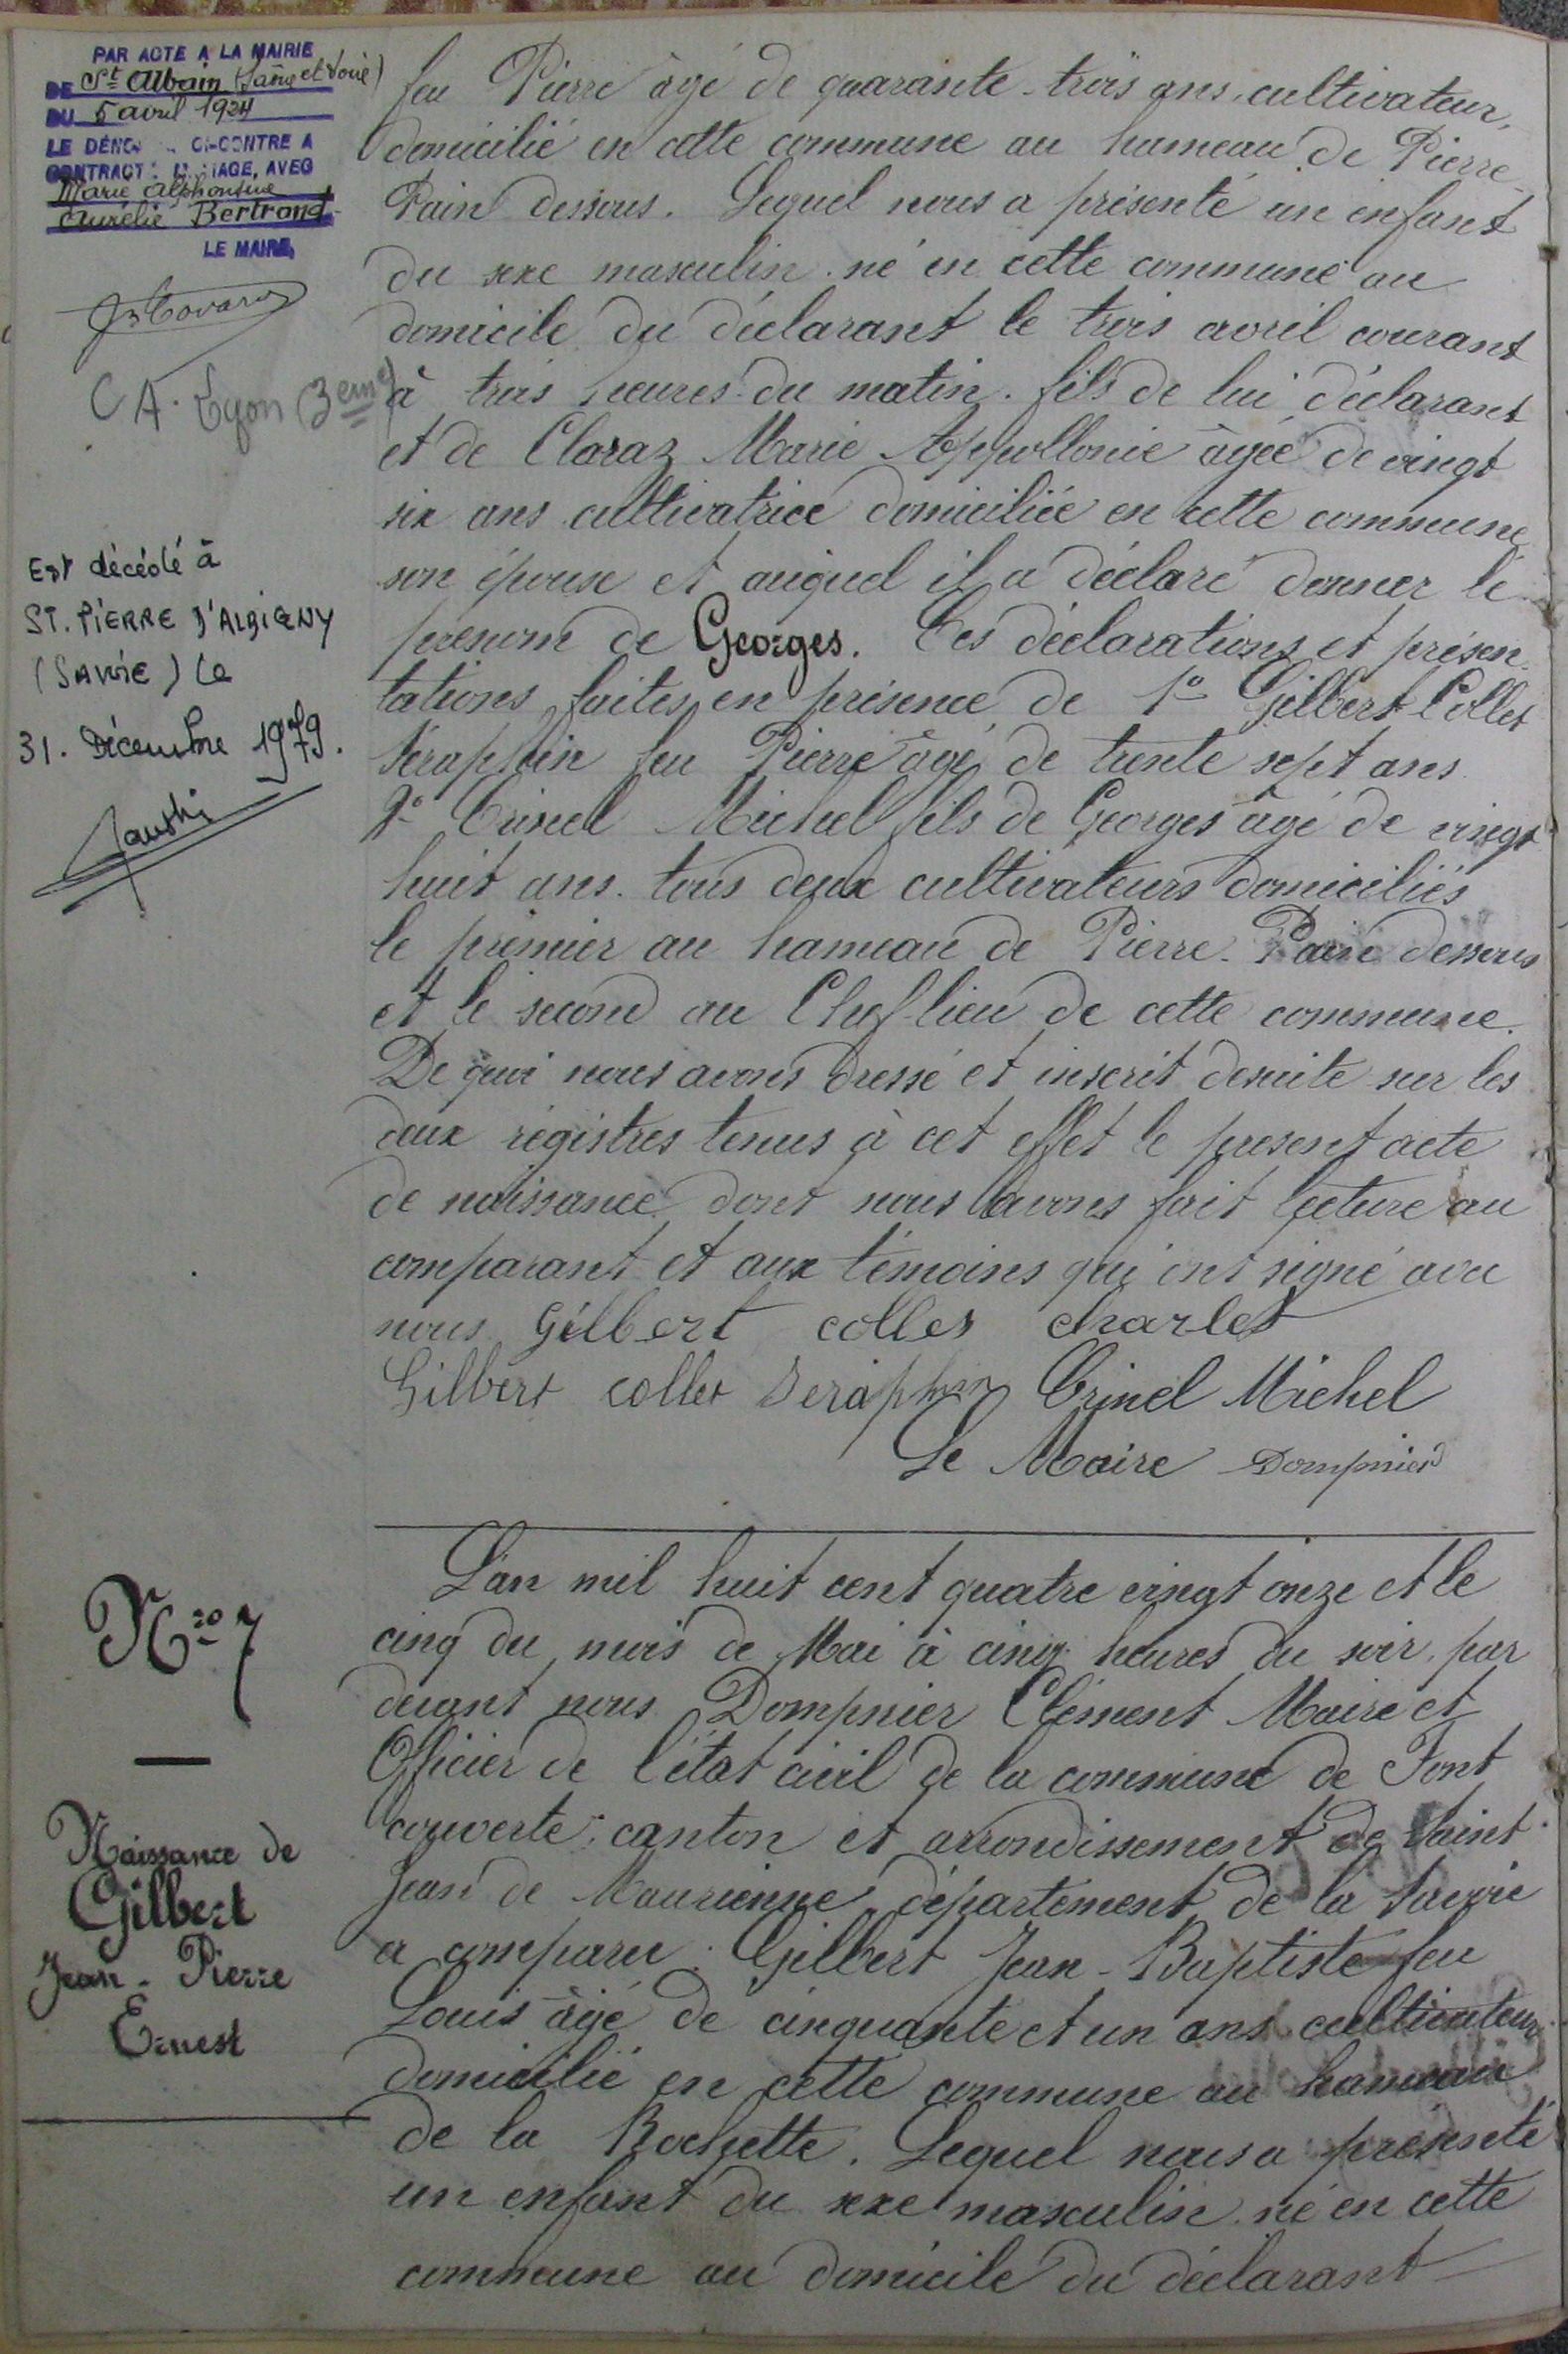 PAR ACTE A LA MAIRIE
DE St Albain (Saône et Loire)
DU 5 avril 1924
LE DÉNO CI-CONTRE A
CONTRACT MARIAGE, AVEC
Marie Alphonsine
Aurélie Bertrand
LE MAIRE,
CA. Lyon (3eme)
Est décédé à
ST. PIERRE D'ALBIGNY
(SAVOIE) le
31. Décembre 1979.
feu Pierre âgé de quarante-trois ans, cultivateur,
domicilié en cette commune au hameau de Pierre-
Pain dessous. Lequel nous a présenté un enfant
du sexe masculin né en cette commune au
domicile du déclarant le trois avril courant
à trois heures du matin. fils de lui déclarant
et de Claraz Marie Appollonie âgée de vingt
six ans cultivatrice domiciliée en cette commune
son épouse et auquel il a déclaré donner le
prénom de Georges. Ces déclarations et présen-
tations faites en présence de 1o Gilbert Collet
Séraphin feu Pierre âgé de trente sept ans
2o Crinel Michel fils de Georges âgé de vingt
huit ans. tous deux cultivateurs domiciliés
le premier au hameau de Pierre-Pain dessous
et le second au Chef-lieu de cette commune.
De quoi nous avons dressé et inscrit desuite sur les
deux régistres tenus à cet effet le present acte
de naissance dont nous avons fait lecture au
comparant et aux témoins qui ont signé avec
nous Gilbert collet charles
Gilbert collet Seraphin Crinel Michel
Le Maire Dompnier
Nro 7
Naissance de
Gilbert
Jean-Pierre
Ernest
L'an mil huit cent quatre vingt onze et le
cinq du mois de Mai à cinq heures du soir, par
devant nous Dompnier Clément Maire et
Officier de l'état civil de la commune de Font
couverte, canton et arrondissement de Saint
Jean de Maurienne, département de la Savoie
a comparu Gilbert Jean-Baptiste feu
Louis âgé de cinquante et un ans cultivateur
domicilié en cette commune au hameau
de la Rochette. Lequel nous a présenté
un enfant du sexe masculin né en cette
commune au domicile du déclarant